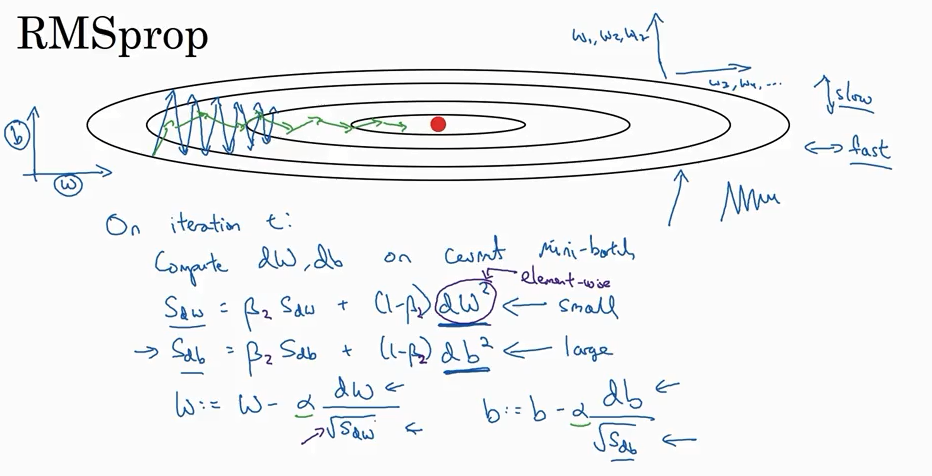 RMSprop
w₁, w₂, w₂
w₃, w₄, ...
slow
fast
b
w
On iteration t:
Compute dW, db on current mini-batch
element-wise
S_dw = β₂ S_dw + (1-β₂) dW² ← small
→ S_db = β₂ S_db + (1-β₂) db² ← large
W := W - α dW/√S_dw ← b := b - α db/√S_db ←